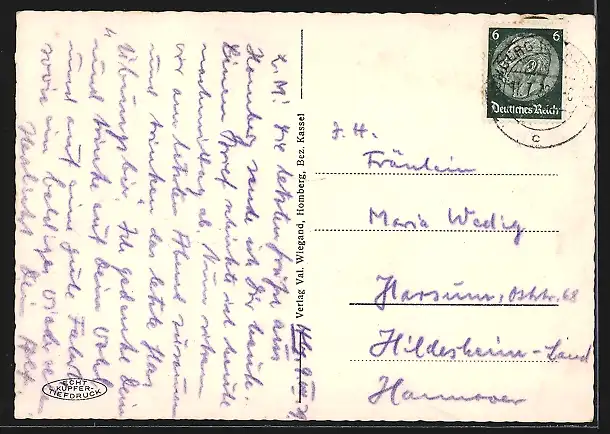 L. M! Die letzten Grüße aus
Homberg sende ich Dir heute.
Einen Brief schickte ich heute
nachmittag ab. Nun sitzen
wir am letzten Abend zusammen
und trinken das letzte Glas
"Übungsbier". Ich gedenke Dein
und trinke auf Dein Wohl
und auf eine gute Fahrt
sowie ein baldiges Wiedersehen
Herzlichst Dein
Verlag Val. Wiegand, Homberg, Bez. Kassel
ECHT
KUPFER-
TIEFDRUCK
6 6
Deutsches Reich
c
z. H.
Fräulein
Maria Wedig
Harsum, Oststr. 68
Hildesheim-Land
Hannover